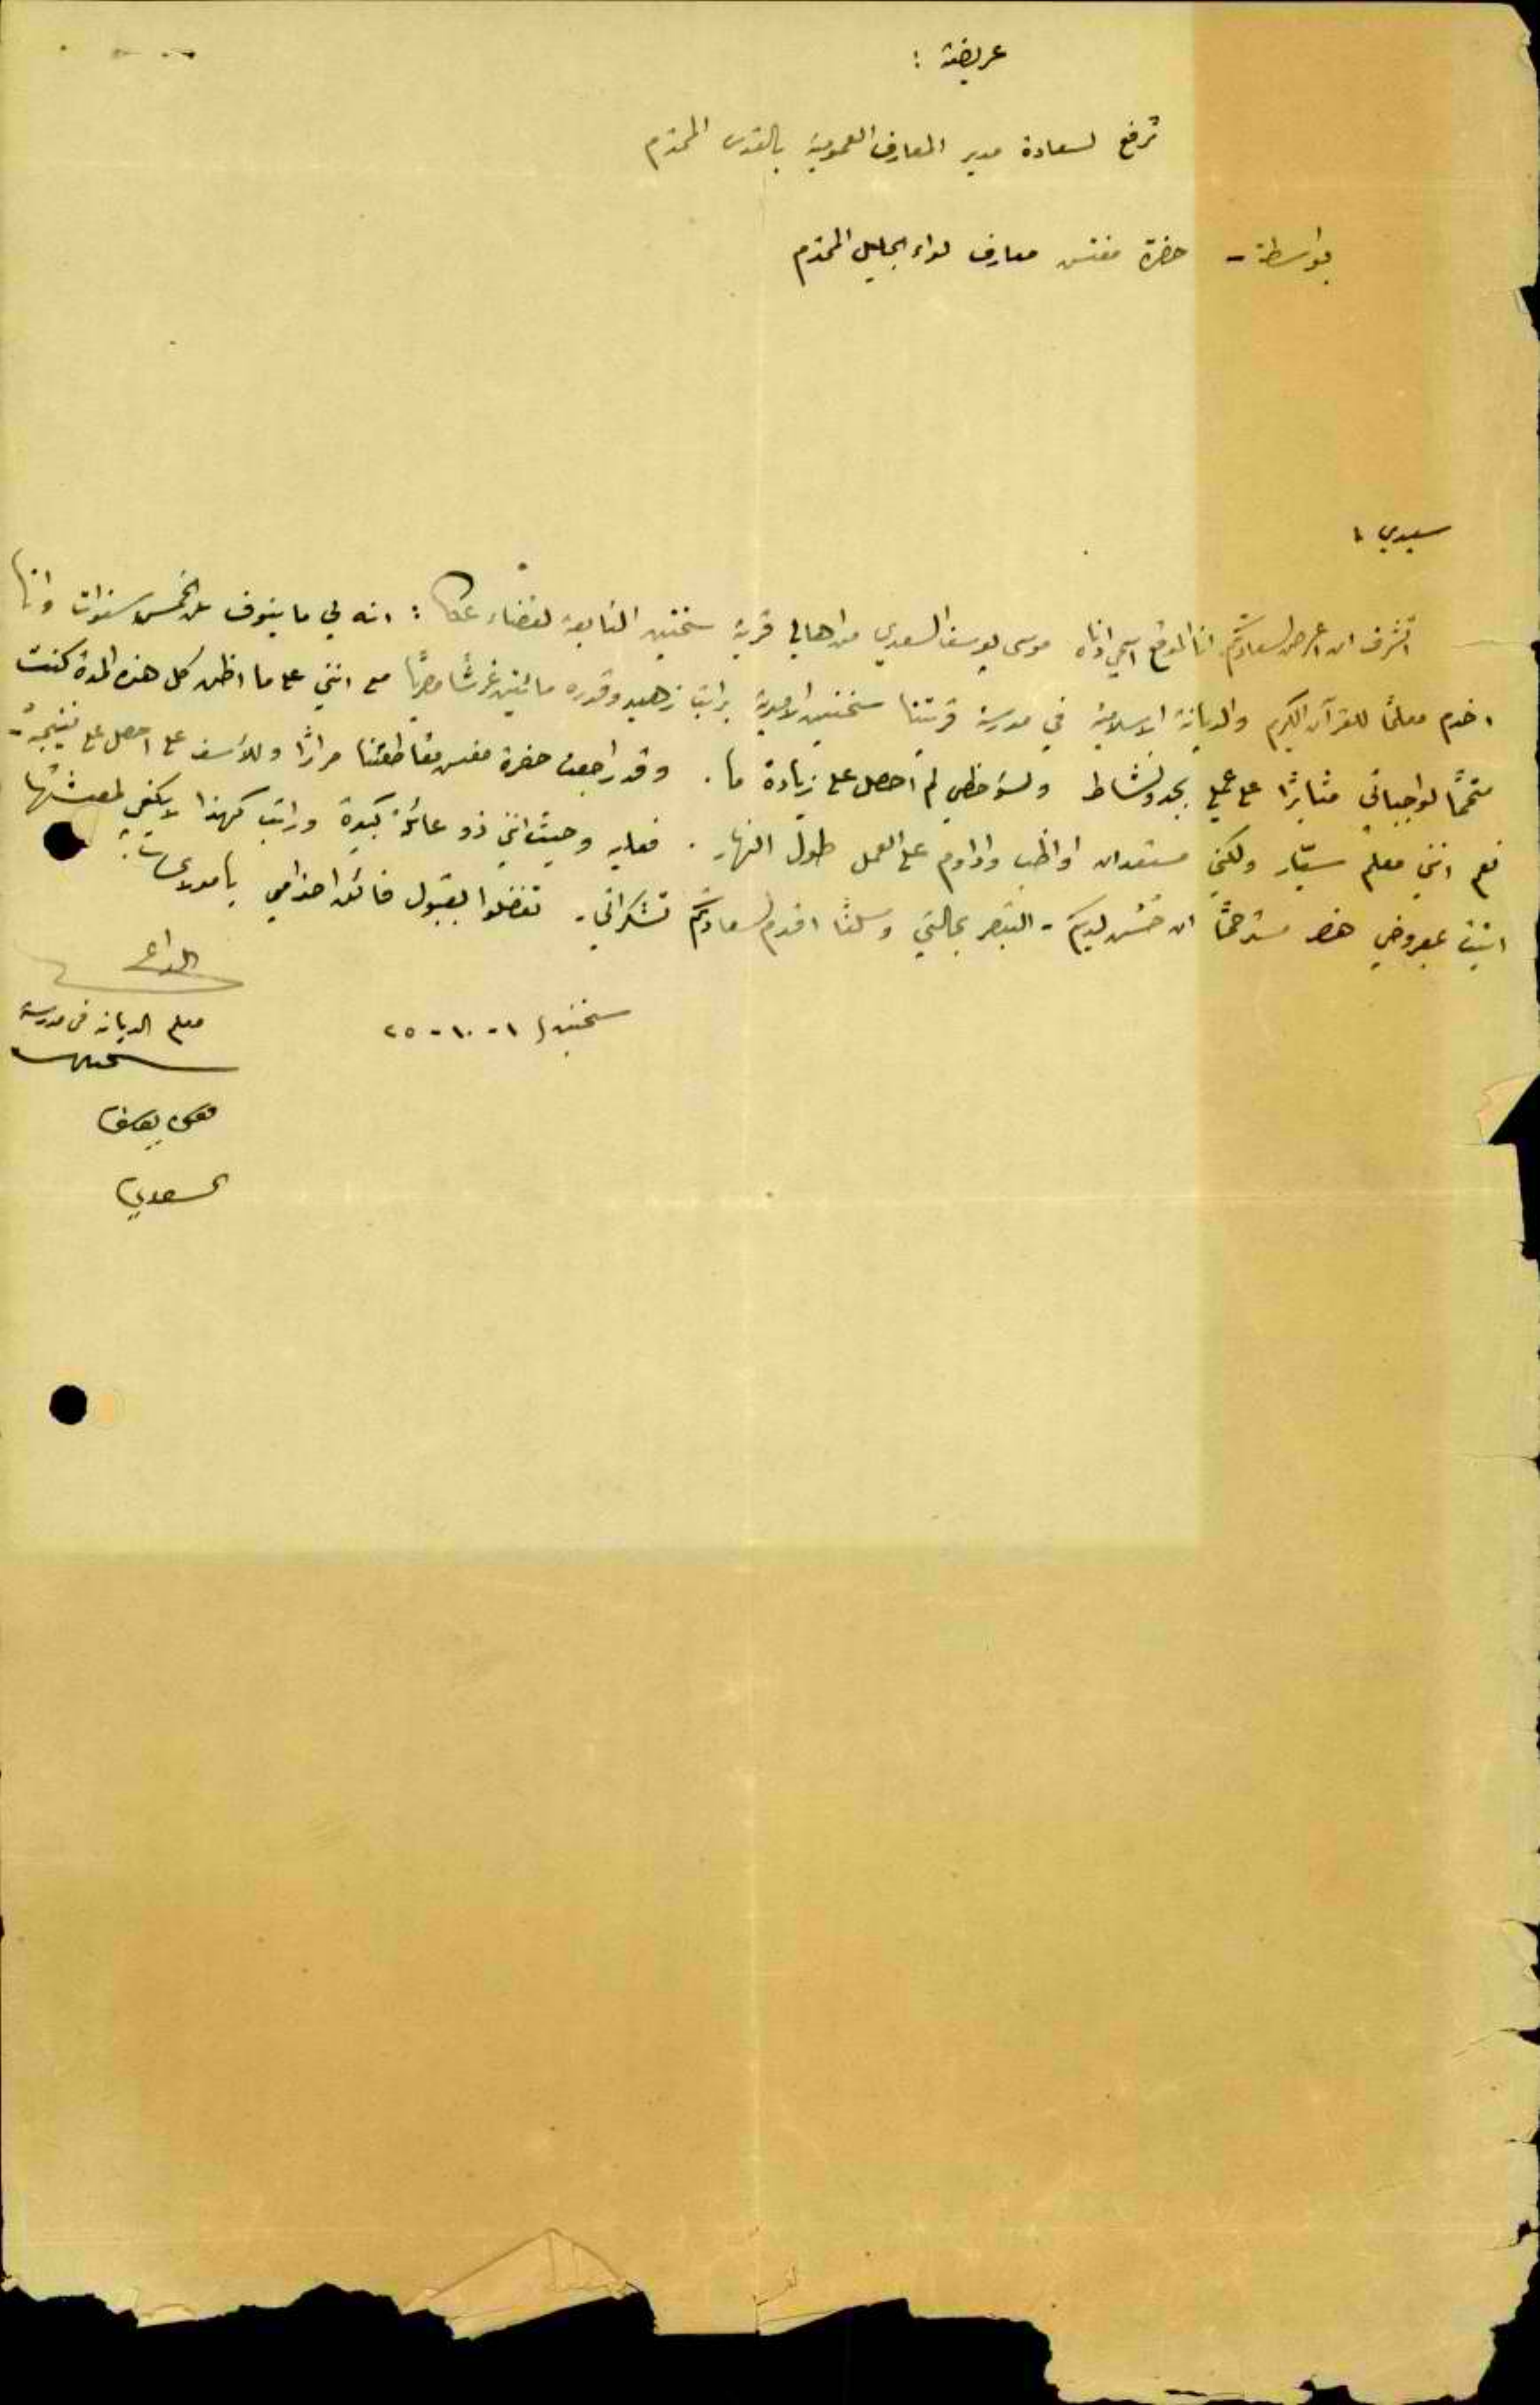 عريضة :
ترفع لسعادة مدير المعارف العمومية بالقدس المحترم
بواسطة - حضرة مفتش معارف لواء الجليل المحترم
سيدي ،
اتشرف ان اعرض لسعادتكم انا الموقع اسمي ادناه موسى يوسف السعدي من اهالي قرية سخنين التابعة لقضاء عكا : انه لي ما ينوف عن الخمس سنوات وانا
اخدم معلمًا للقرآن الكريم والديانة الاسلامية في مدرسة قريتنا سخنين الاميرية براتب زهيد وقدره مائتين غرشًا مصريًا مع انني على ما اظن كل هذه المدة كنت
متممًا لواجباتي مثابرًا على عملي بجد ونشاط ولسؤ حظي لم احصل على زيادة ما . وقد راجعت حضرة مفتش مقاطعتنا مرارًا وللأسف احصل على نتيجة -
نعم انني معلم سيّار ولكني مستعد ان اواظب واداوم على العمل طول النهار . فعليه وحيث انني ذو عائلة كبيرة وراتب كهذا لا يكفي لمعيشتها
اتيت بمعروضي هذا مسترحمًا ان حَسُن لديكم - التبصر بحالتي وسلفًا اقدم لسعادتكم تشكراتي - تفضلوا بقبول فائق احترامي يا مولاي
الداعي
سخنين ١ - ١٠ - ٢٥
معلم الديانه في مدرسة
سخنين
موسى يوسف
السعدي